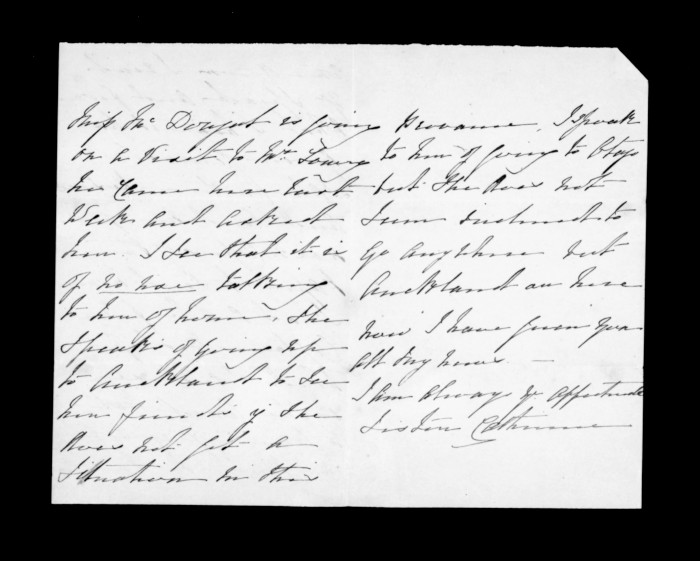 Miss Mc Dougal is going
on a visit to Mrs Lowry
he came here last
week and asked
her. I see that it is
of no use talking
to her of home, she
speaks of going up
to Auckland to see
her friends if she
does not get a
situation in this
Province. I spoke
to her of going to Otago
but she does not
seem inclined to
go anywhere but
Auckland or here
now I have given you
all my news —
I am always yr affectionate
Sister Catherine